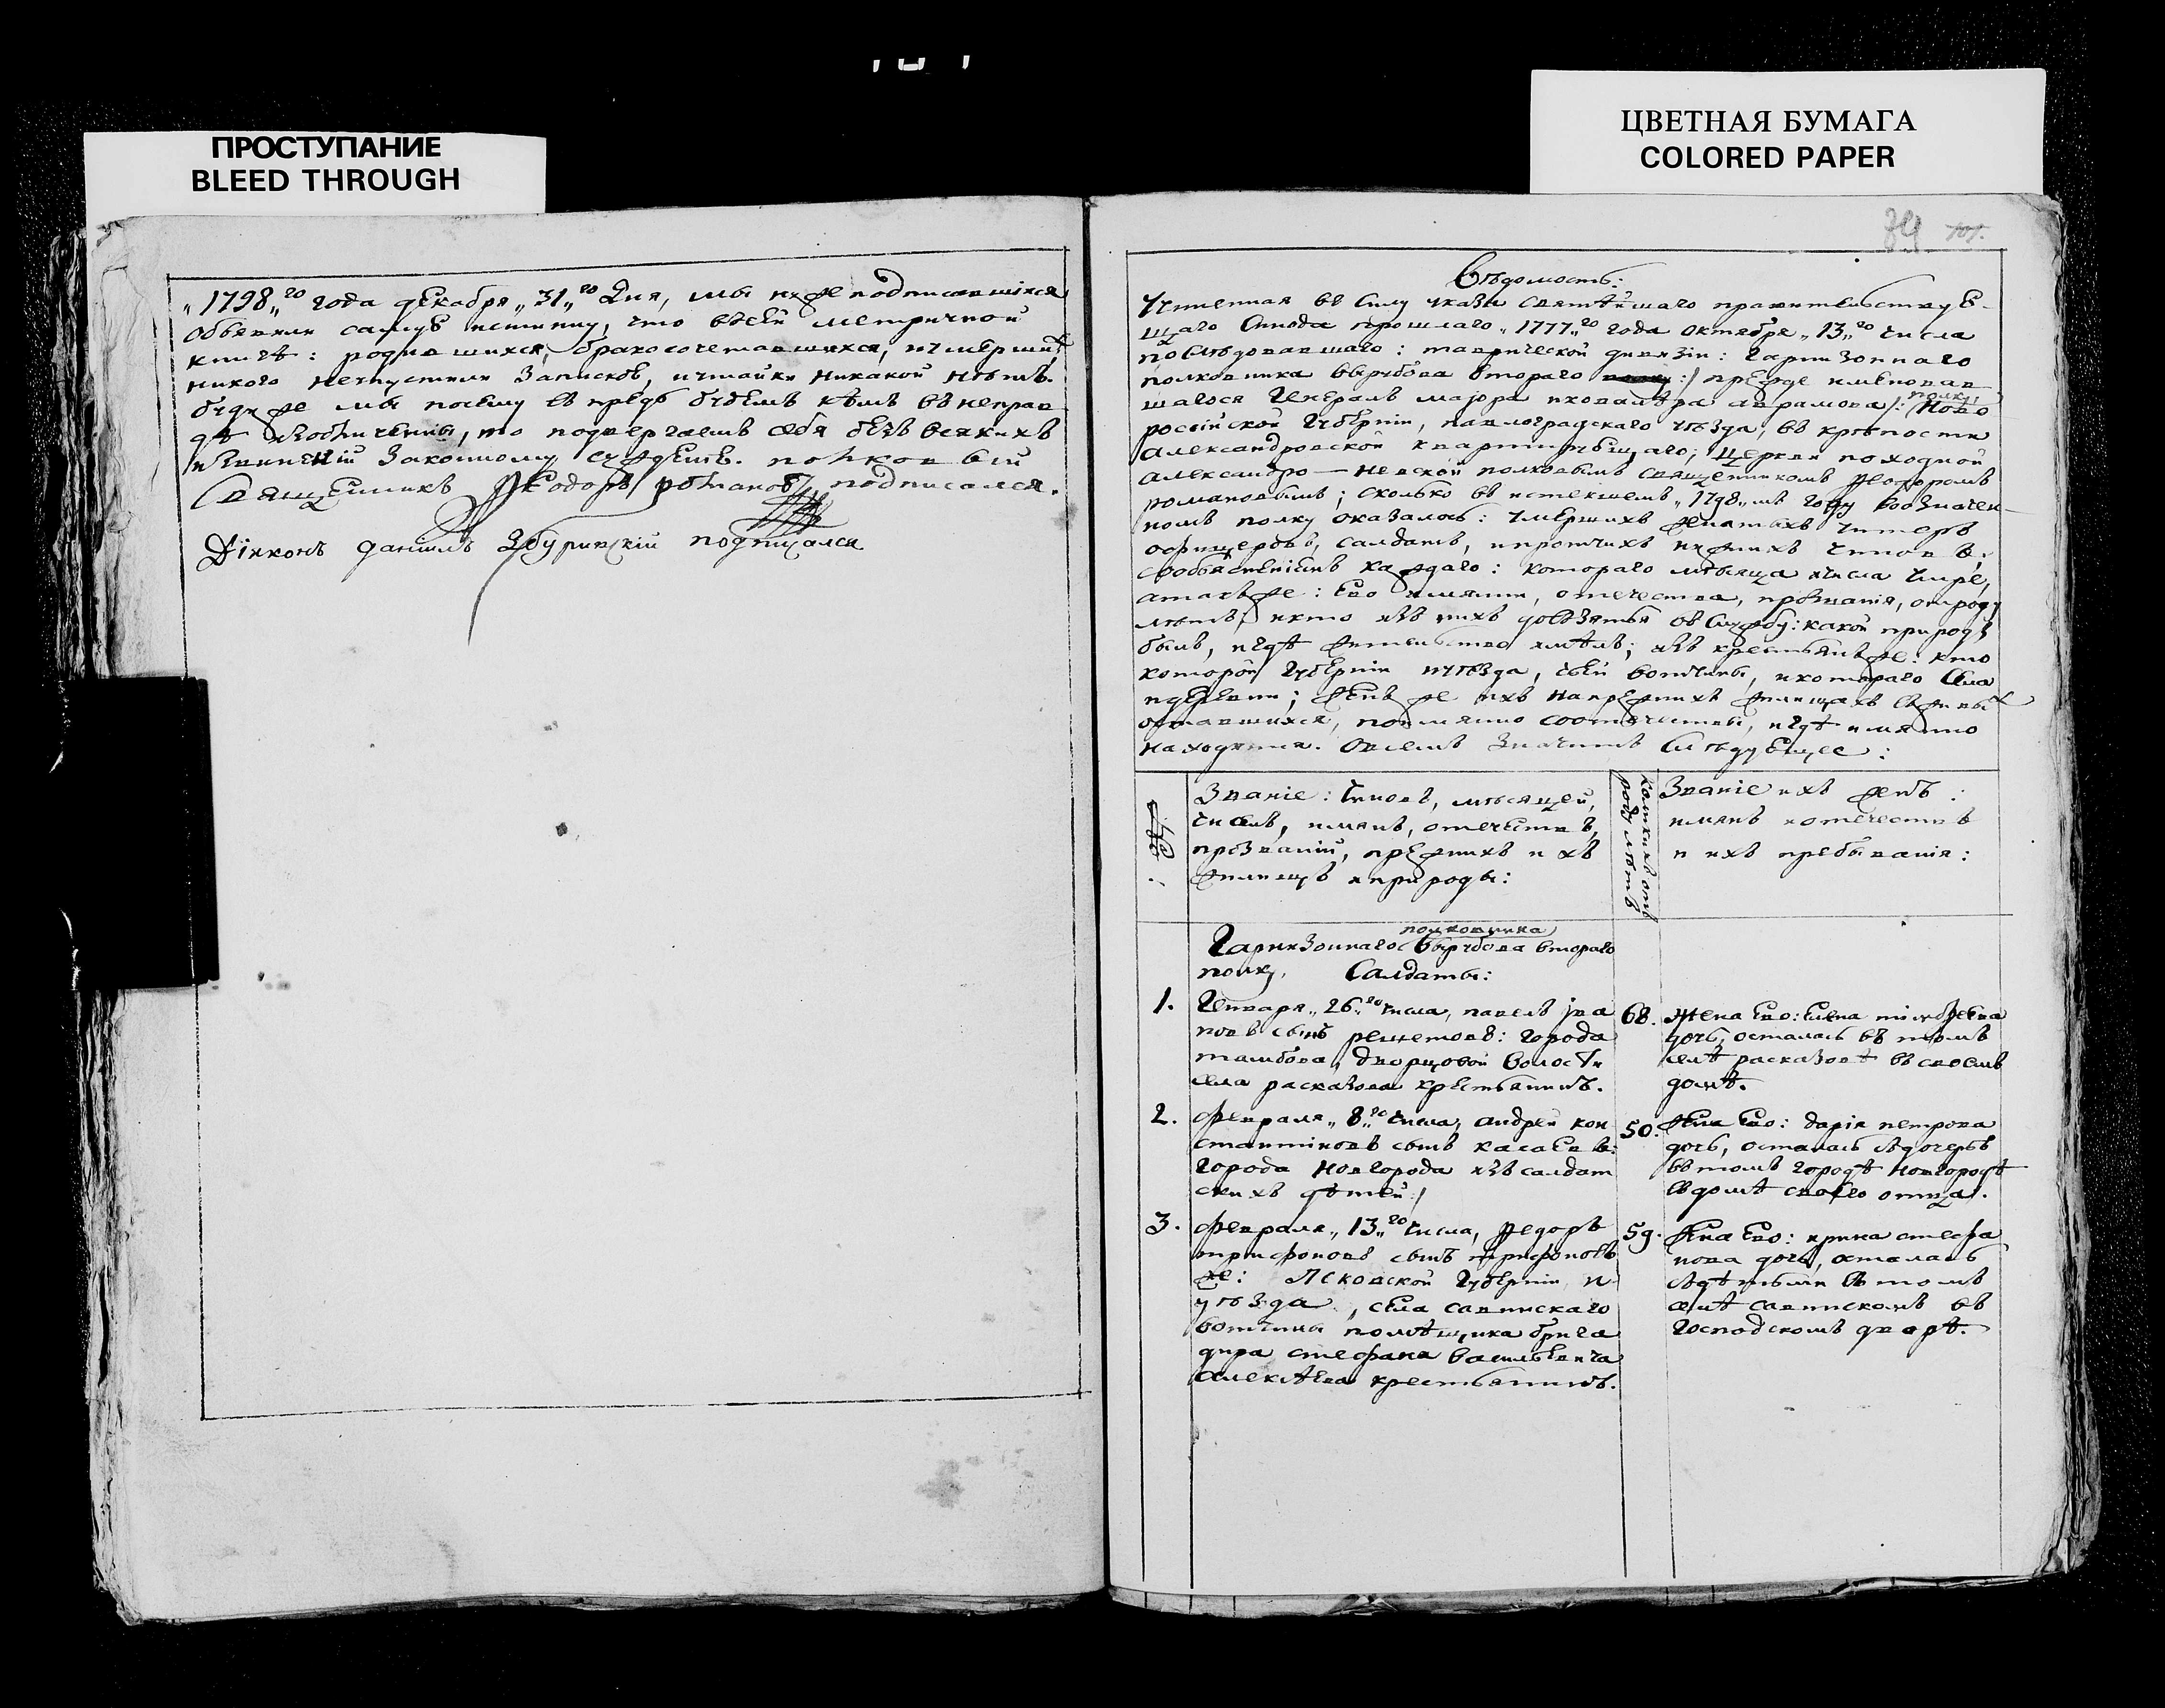 ПРОСТУПАНИЕ
BLEED THROUGH
ЦВЕТНАЯ БУМАГА
COLORED PAPER
„1798„го года декабря „31„го Дня, мы нижеподписавшіяся
объявили самую истинну, что въсей метричной
книгѣ: родившихся, бракосочетавшихся, иумершихъ
никого неупустили Записков, иутайки никакой нѣтъ.
буди же мы посему впредь будемъ кѣмъ въ неправ
дѣ, то подвергаемъ себя безъ всякихъ
извиненій Законному сужденію. полковый
Священникъ Ѳеодоръ романовъ, подписался.
Діяконъ даніилъ Збуривскій подписался
84 101.
Вѣдомость:
Учиненная въ Силу указа святѣйшаго правительствую
щаго Синода прошлаго „1777„го года октября „13„го числа
послѣдовавшаго: таврической дивизіи: гарнизоннаго
полковника Вырубова втораго :/ прежде именовав
шагося Генералъ маіора икавалѣра аврамова /: полку Ново
россійской губерніи, павлоградскаго уѣзда, въ крѣпости
александровской квартирующаго; церкви походной
александро—невской полковымъ священникомъ Ѳеодоромъ
романовымъ; сколько въ истекшемъ „1798„мъ году воозначен
номъ полку оказалось: умершихъ женатыхъ унтеръ
офицеровъ, салдатъ, ипротчихъ нижнихъ чиновъ;
сообъясненіемъ каждаго: котораго мѣсяца ичисла умре,
атакъже: Его имянии, отечества, прозванія, отроду
лѣтъ; икто изъ нихъ довзятья въ Службу: какой природы
былъ, игдѣ жительство имѣлъ; изъ крестьянъ же: кто
которой губерніи иуѣзда, чьей вотчины, икотораго села
идеревни; женъ же ихъ напрежнихъ жилищахъ
оставшихся, поимянно соотечествы, игдѣ имянно
находятся. Овсемъ Значитъ Слѣдующее:
№
Званіе: Чиновъ, мѣсяцей,
чиселъ, имянъ, отечествъ,
прозваній, прежнихъ ихъ
жилищъ иприроды:
коликихъ отъ
роду лѣтъ
Званіе ихъ женъ:
имянъ иотечествъ
и ихъ пребыванія:
Гарнизоннаго полковника Вырубова втораго
полку. Салдаты:
1. Генваря „26„го числа, павелъ іва
новъ сынъ решетовъ: города
тамбова, дворцовой волости
села расказова крестьянинъ.
68. Жена Его: Елена
дочь, осталась въ томъ
селѣ расказовѣ въ своемъ
домѣ.
2. февраля „8„го числа, андрей кон
стантіновъ сынъ касаевъ:
города новгорода изъ салдат
скихъ дѣтей:/
50. Жена Его: дарія петрова
дочь, осталась здочерью
въ томъ городѣ новгородѣ
въдомѣ своего отца.
3. февраля „13„го числа, Ѳедоръ
трифоновъ сынъ трифоновъ
же: Псковской губерніи и
уѣзда, села савинскаго
вотчины помѣщика брига
дира стефана васильевича
алексѣева крестьянинъ.
59. Жена Его: ирина стефа
нова дочь, осталась
здѣтьми въ томъ
селѣ савинскомъ въ
господскомъ дворѣ.